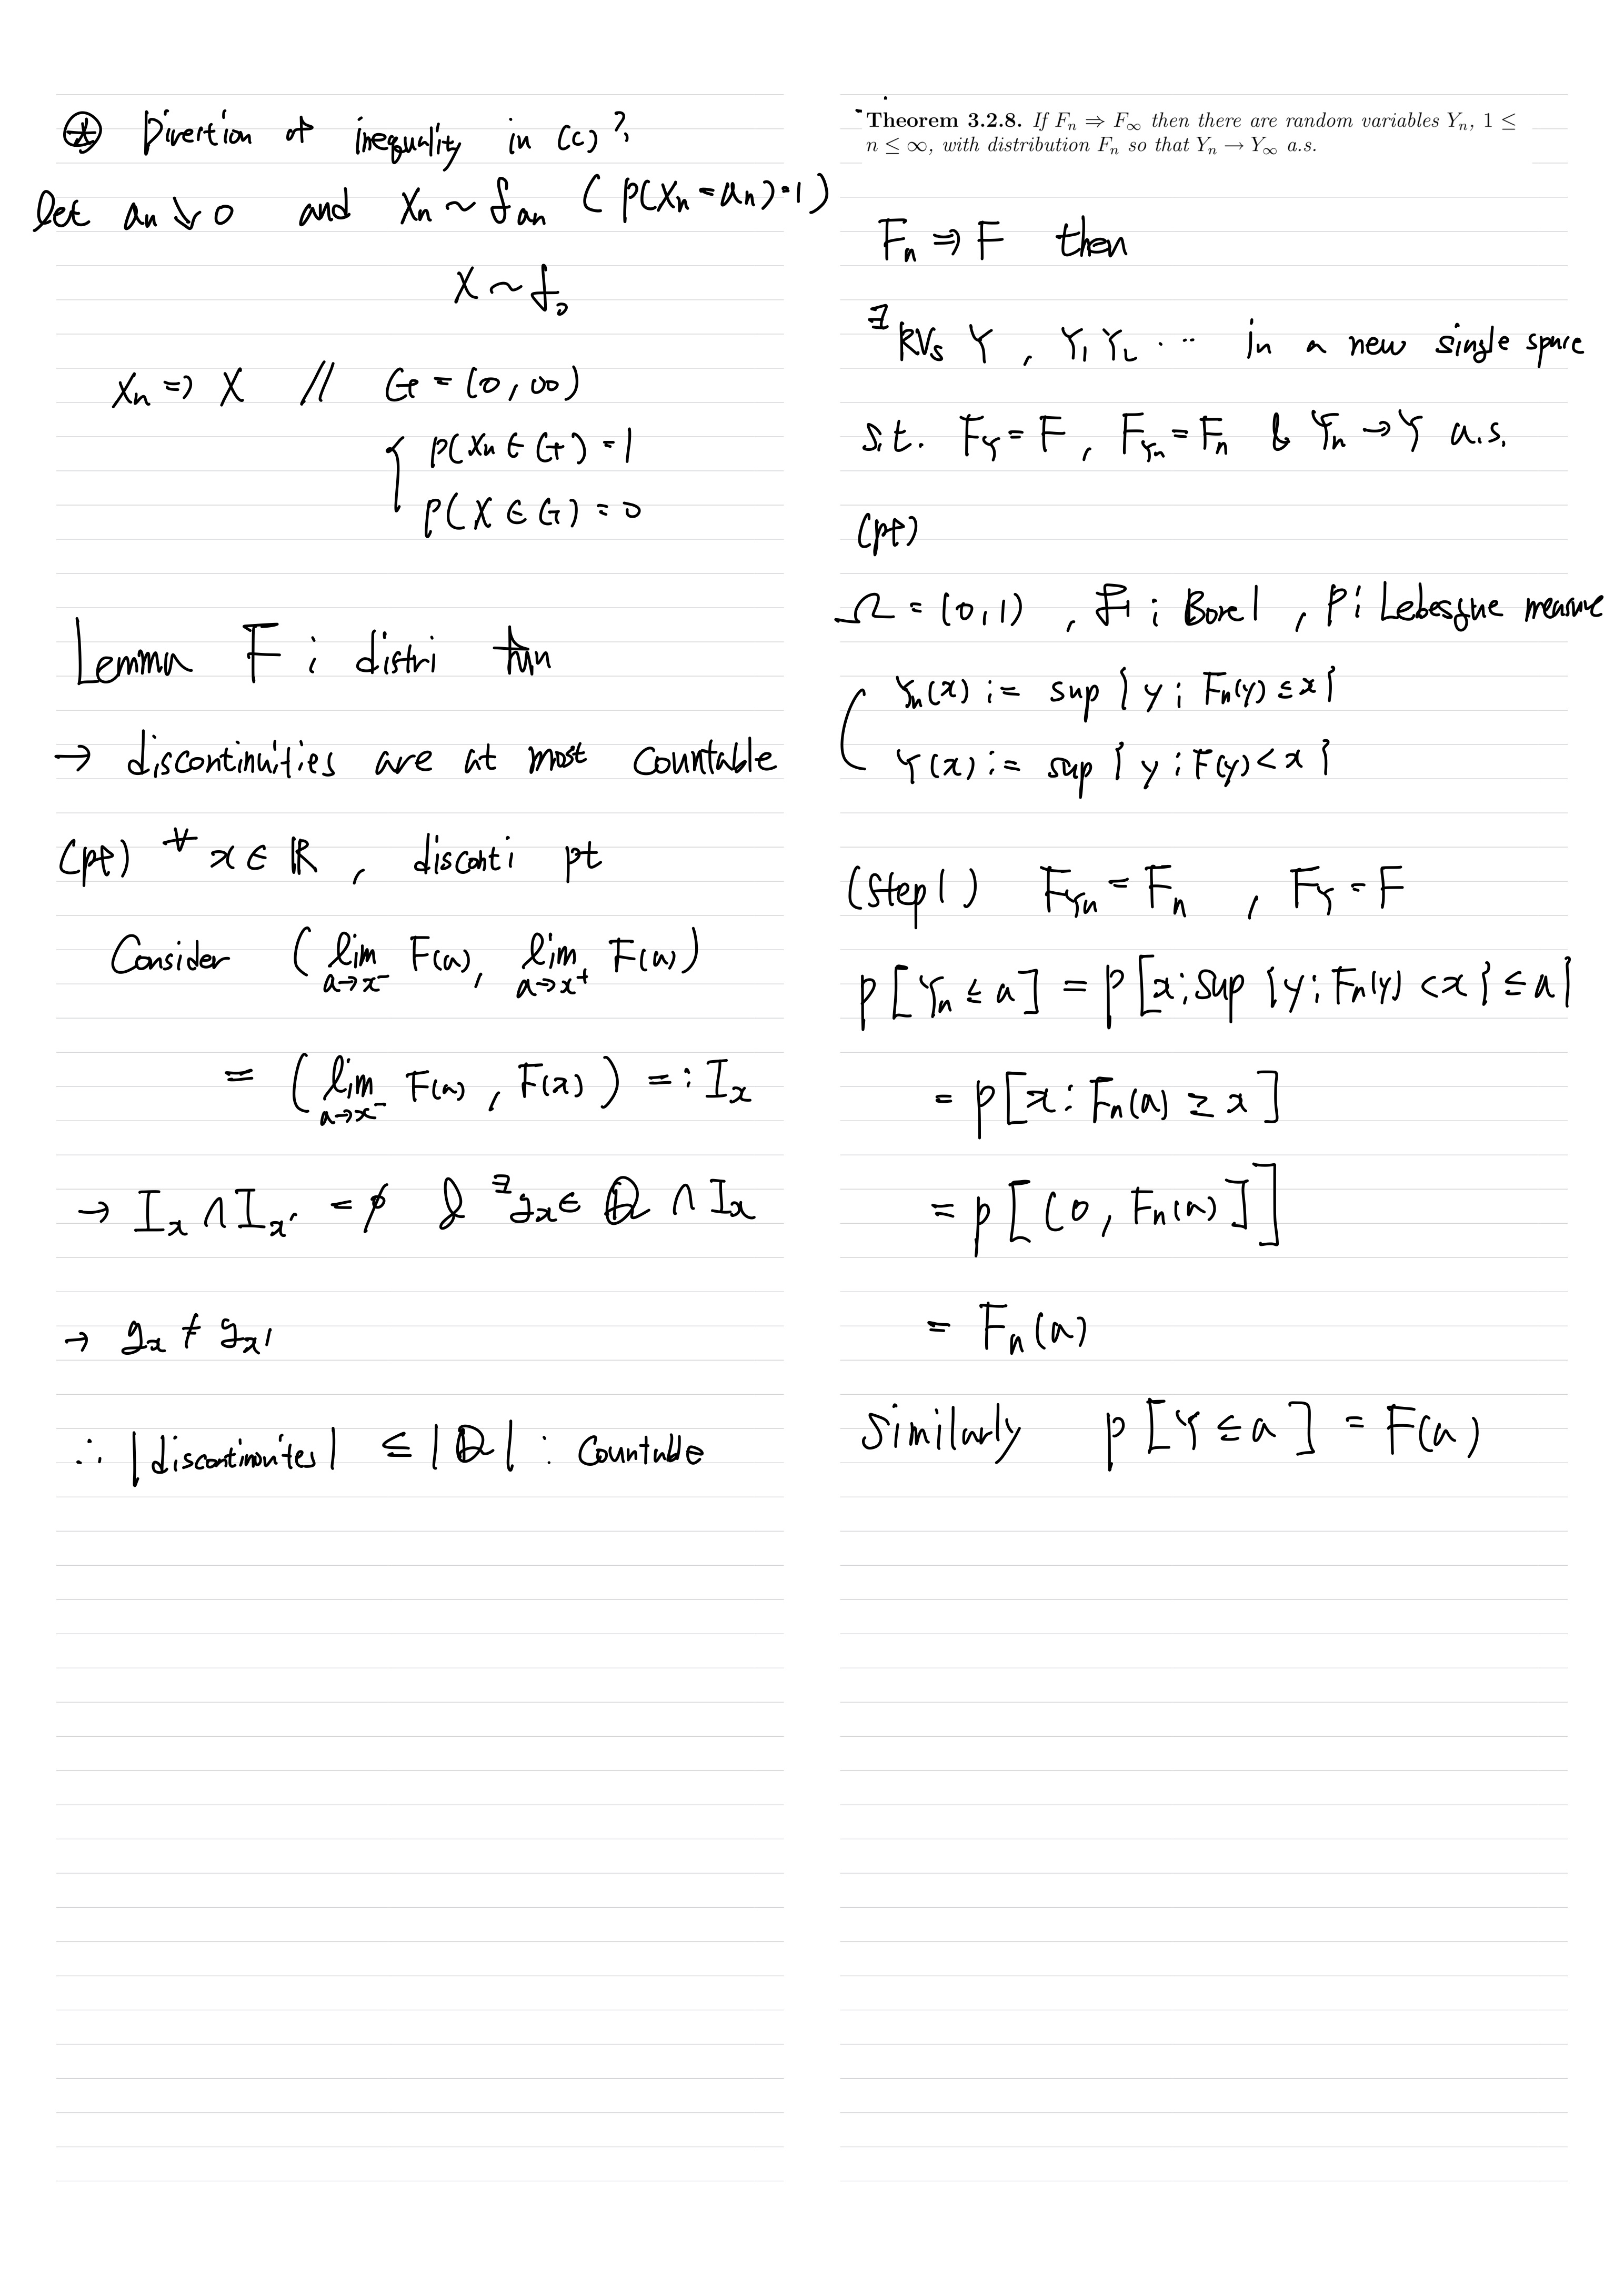 ⊛ Direction of inequality in (c)?
let an ↓ 0 and Xn ~ δan (P(Xn = an) = 1)
X ~ δ0
Xn ⇒ X // G = (0, ∞)
{ P(Xn ∈ G) = 1
P(X ∈ G) = 0
Lemma F ; distri fun
→ discontinuities are at most countable
(pf) ∀x ∈ ℝ, disconti pt
Consider (lim a→x⁻ F(a), lim a→x⁺ F(a))
= (lim a→x⁻ F(a), F(x)) =: Ix
→ Ix ∩ Ix' = ∅ & ∃qx ∈ ℚ ∩ Ix
→ qx ≠ qx'
∴ |discontinuites| ≤ |ℚ| : countable
Theorem 3.2.8. If Fn ⇒ F∞ then there are random variables Yn, 1 ≤
n ≤ ∞, with distribution Fn so that Yn → Y∞ a.s.
Fn ⇒ F then
∃ RVs Y, Y1 Y2 ... in a new single space
s.t. FY = F, FYn = Fn & Yn → Y a.s.
(pf)
Ω = (0,1), ℱ ; Borel, P ; Lebesgue measure
Yn(x) := sup { y ; Fn(y) ≤ x }
Y(x) := sup { y ; F(y) < x }
(Step 1) FYn = Fn, FY = F
P[Yn ≤ a] = P[x ; sup {y ; Fn(y) < x} ≤ a]
= P[x : Fn(a) ≥ x]
= P[(0, Fn(a)]]
= Fn(a)
Similarly P[Y ≤ a] = F(a)